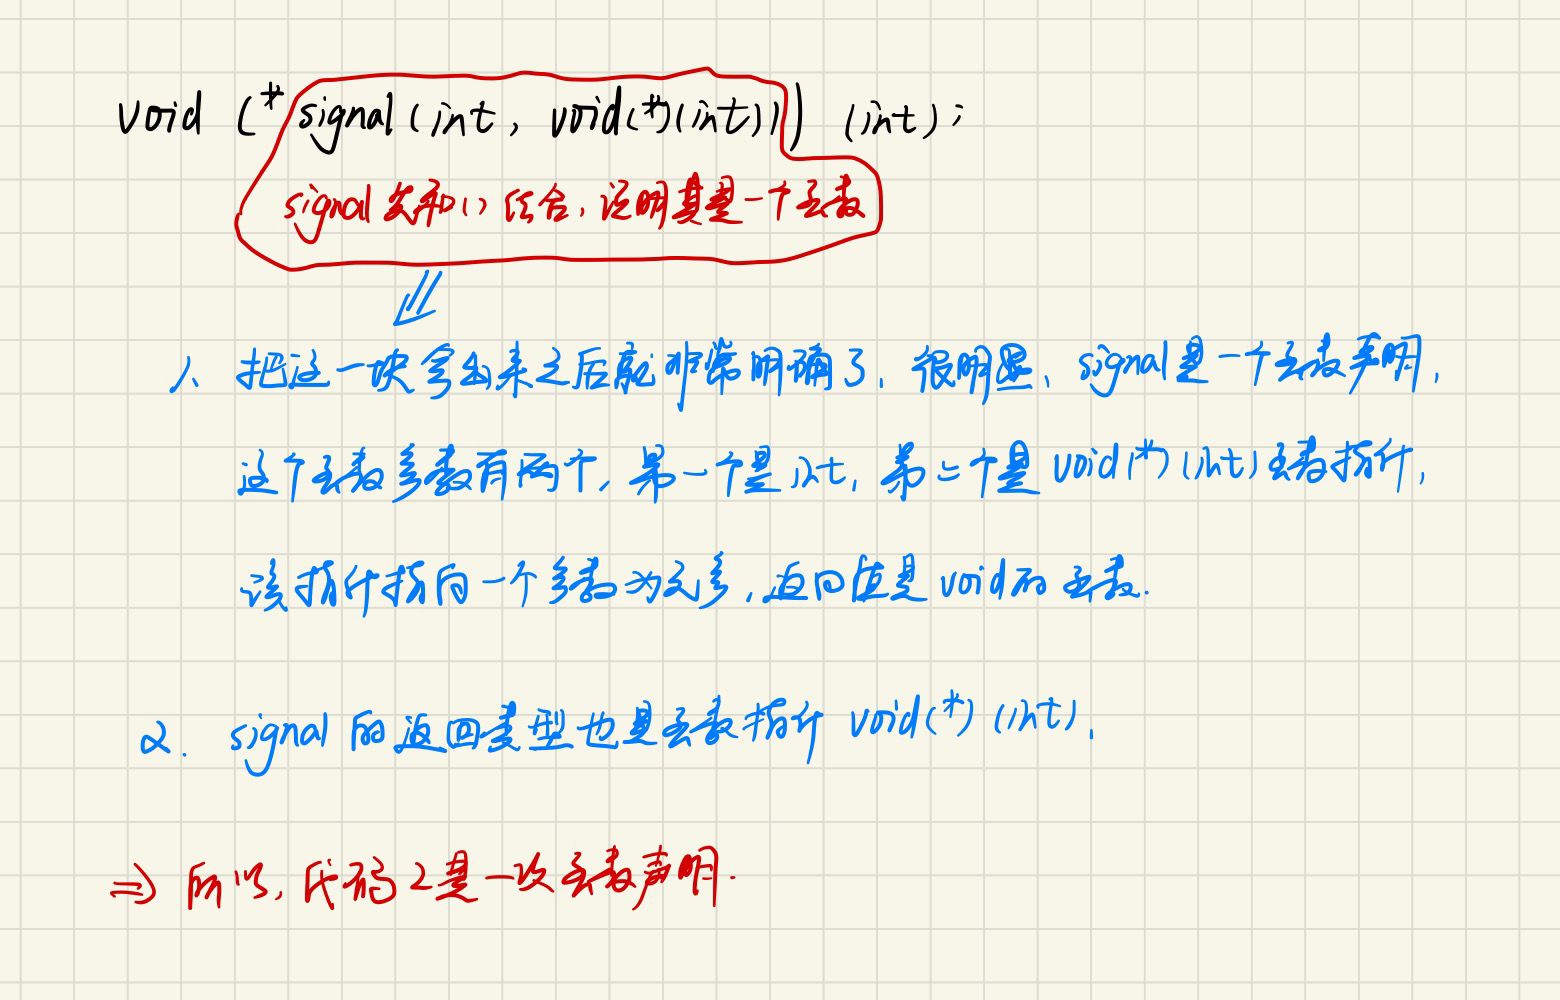 void (* signal(int, void(*)(int))) (int);
signal先和()结合,说明其是一个函数
1、把这一块拿出来之后就非常明确了,很明显、signal是一个函数声明,
这个函数参数有两个,第一个是int,第二个是void(*)(int)函数指针,
该指针指向一个参数为无参,返回值是void的函数.
2. signal的返回类型也是函数指针 void(*)(int),
⇒ 所以,代码2是一次函数声明.